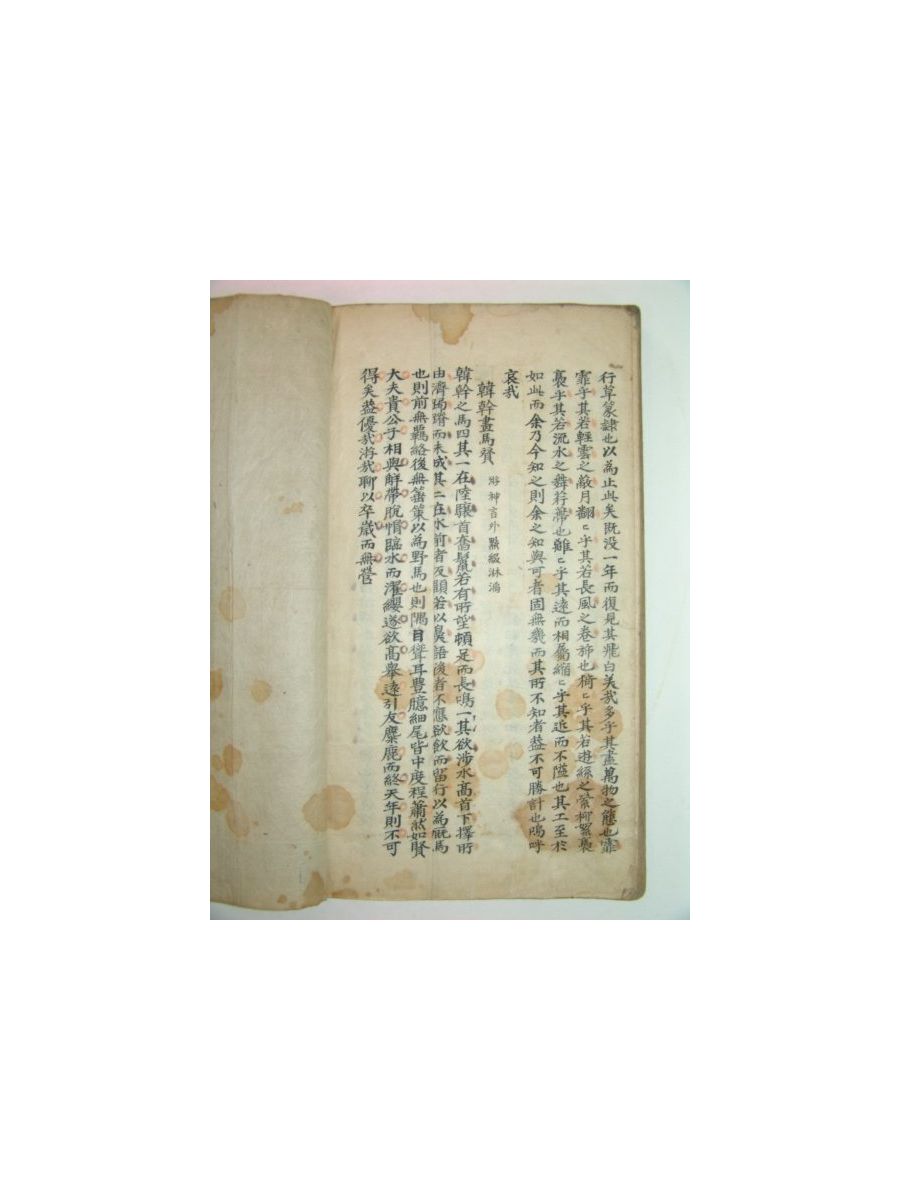 行草篆隷也以為止此矣既没一年而復見其飛白美哉多乎其盡萬物之態也霏
霏乎其若輕雲之蔽月翻〻乎其若長風之卷旆也猗〻乎其若遊絲之縈柳絮裊
裊乎其若流水之舞荇帶也離〻乎其遠而相屬縮〻乎其近而不隘也其工至於
如此而余乃今知之則余之知與可者固無幾而其所不知者葢不可勝計也嗚呼
哀哉
韓幹畫馬贊 神言外點綴淋漓
韓幹之馬四其一在陸驤首奮鬣若有所望頓足而長鳴一其欲涉水高首下擇所
由濟跼蹐而未成其二在水前者反顧若以鼻語後者不應欲飲而留行以為厩馬
也則前無羈絡後無箠策以為野馬也則隅目聳耳豐臆細尾皆中度程蕭然如賢
大夫貴公子相與解帶脫帽臨水而濯纓遂欲高舉遠引友麋鹿而終天年則不可
得矣葢優哉游哉聊以卒歲而無營